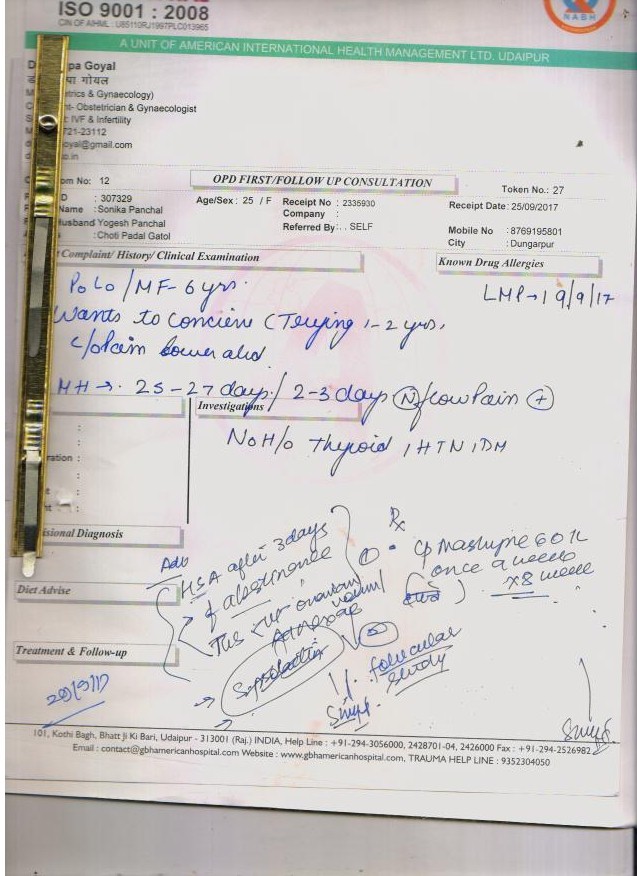 ISO 9001 : 2008
CIN OF AIHML : U85110RJ1997PLC013965
NABH
A UNIT OF AMERICAN INTERNATIONAL HEALTH MANAGEMENT LTD. UDAIPUR
pa Goyal
पा गोयल
trics & Gynaecology)
nt- Obstetrician & Gynaecologist
: IVF & Infertility
721-23112
oyal@gmail.com
o.in
om No: 12
OPD FIRST/FOLLOW UP CONSULTATION
Token No.: 27
D : 307329
Age/Sex : 25 / F
Receipt No : 2335930
Receipt Date: 25/09/2017
Name : Sonika Panchal
Company :
usband Yogesh Panchal
Referred By: . . SELF
Mobile No : 8769195801
: Choti Padal Gatol
City : Dungarpur
f Complaint/ History/ Clinical Examination
Known Drug Allergies
P0L0/MF-6yrs.
LMP→19/9/17
Wants to concieve (Trying 1-2 yrs.
c/o Pain lower abd.
MH→ 25-27 days / 2-3 days N flow Pain +
Investigations
No H/o Thyroid, HTN, DM
ration :
isional Diagnosis
Rx
Adv
HSA after 3 days
of abstinance
once a week
x8 week
Diet Advise
Treatment & Follow-up
follicular
study
101, Kothi Bagh, Bhatt Ji Ki Bari, Udaipur - 313001 (Raj.) INDIA, Help Line : +91-294-3056000, 2428701-04, 2426000 Fax : +91-294-2526982
Email : contact@gbhamericanhospital.com Website : www.gbhamericanhospital.com, TRAUMA HELP LINE : 9352304050